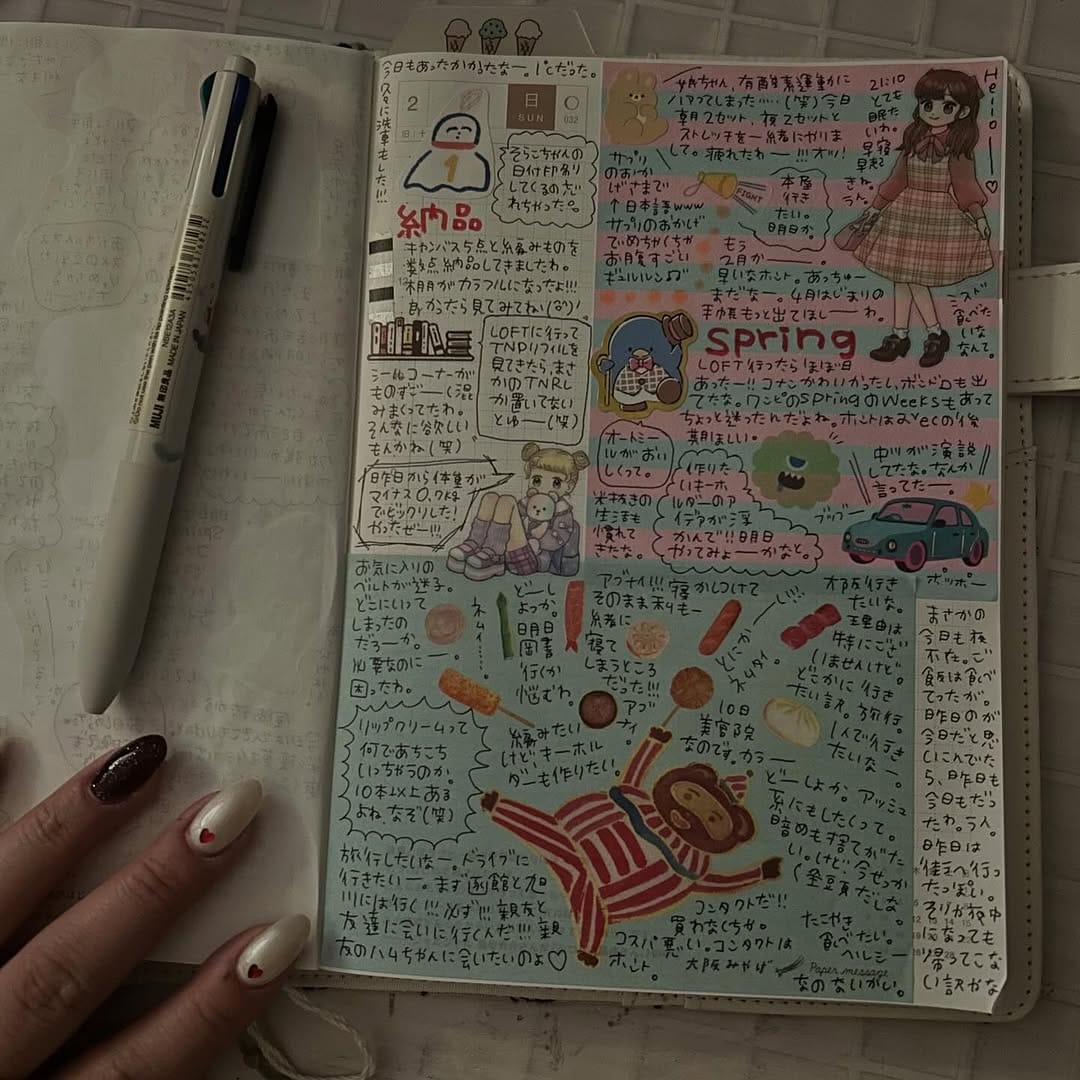 今日もあったかかったなー。1℃だった。
久々に洗車もした!!!
2
日
SUN
032
1
そらこちゃんの
日付印刷り
してくるの忘
れちゃった
納品
キャンバス5点と糸編みものを
数点納品してきましたわ。
棚がカラフルになったよ!!!
良かったら見てみてね
LOFTに行って
TNPリフィルを
見てきたら、まさ
かのTNRし
か置いてない
とゆー(笑)
シールコーナーが
ものすごー(混
みまくってたわ。
そんなに欲しい
もんかね(笑)
昨日から体重が
マイナス0.7kg
でビックリした!
やったぜー!!!
有酸素運動に
ハマってしまった……(笑)今日
朝2セット、夜2セットと
ストレッチを一緒にやりま
して。疲れたわー!!!オッ!
21:10
とても
眠た
いわ。
早寝
早起
Hello
サプリ
のおか
げさまで
↑日本語www
サプリのおかげ
でめちゃくちゃ
お腹すごい
ギュルルン
FIGHT
本屋
行き
たい。
明日か。
もう
2月かー。
早いなホント。あっちゅー
まだなー。4月はじまりの
手帳もっと出てほしーわ。
ミスド
食べた
いな
なんて。
spring
LOFT行ったらほぼ日
あったー!!コナンかわいかったし、ボンドロも出
てたな。ワンピのspringのWeeksもあって
ちょっと迷ったんだよね。ホントは2vecの後
期ほしい。
オートミー
ルがおい
しくって。
米抜きの
生活も
慣れて
きたな。
作りた
いキーホ
ルダーのア
イデアが浮
かんで!!明日
やってみよーかなと。
中リが演説
してたな。なんか
言ってたー。
ブッブー
お気に入りの
ベルトが迷子。
どこにいって
しまったの
だろーか。
必要なのにー。
困ったわ。
ネムイ……
どーし
よっか。
明日
図書
行くか
悩むわ。
アブナイ!!!寝かしつけて
そのまま私もー
緒に
寝て
しまうところ
だった!!!
アブ
ナィ。
とにかく
ネムタイ。
旅行き
たいな。
理由は
特にござ
いませんけど。
どこかに行き
たい訳。旅行。
1人で行き
たいなー。
ポッポー
リップクリームって
何であちこち
いっちゃうのか。
10本以上ある
よね、なぞ(笑)
編みたい
けど、キーホル
ダーも作りたい。
10日
美容院
なのです。カラー
どーしよか。アッシュ
系にもしたくって。
暗めも捨てがた
い。けど今せっか
く金豆頁だしな。
旅行したいなー。ドライブに
行きたいー。まず函館と旭
川には行く!!!必ず!!!親友と
友達に会いに行くんだ!!!親
友のハムちゃんに会いたいのよ♡
コンタクトだ!!
買わなくちゃ。
コスパ悪い。コンタクトは
ホント。
大阪みやげ
たこやき
食べたい。
ヘルシー
なのないがい。
Paper message
まさかの
今日も夜
不在。ご
飯は食べ
てったが。
昨日のが
今日だと思
いこんでた
ら、昨日も
今日もだっ
たわ。うん。
昨日は
街へ行っ
たっぽい。
そりゃ夜中
になっても
帰ってこな
い訳やな
MUJI 無印良品
MADE IN JAPAN